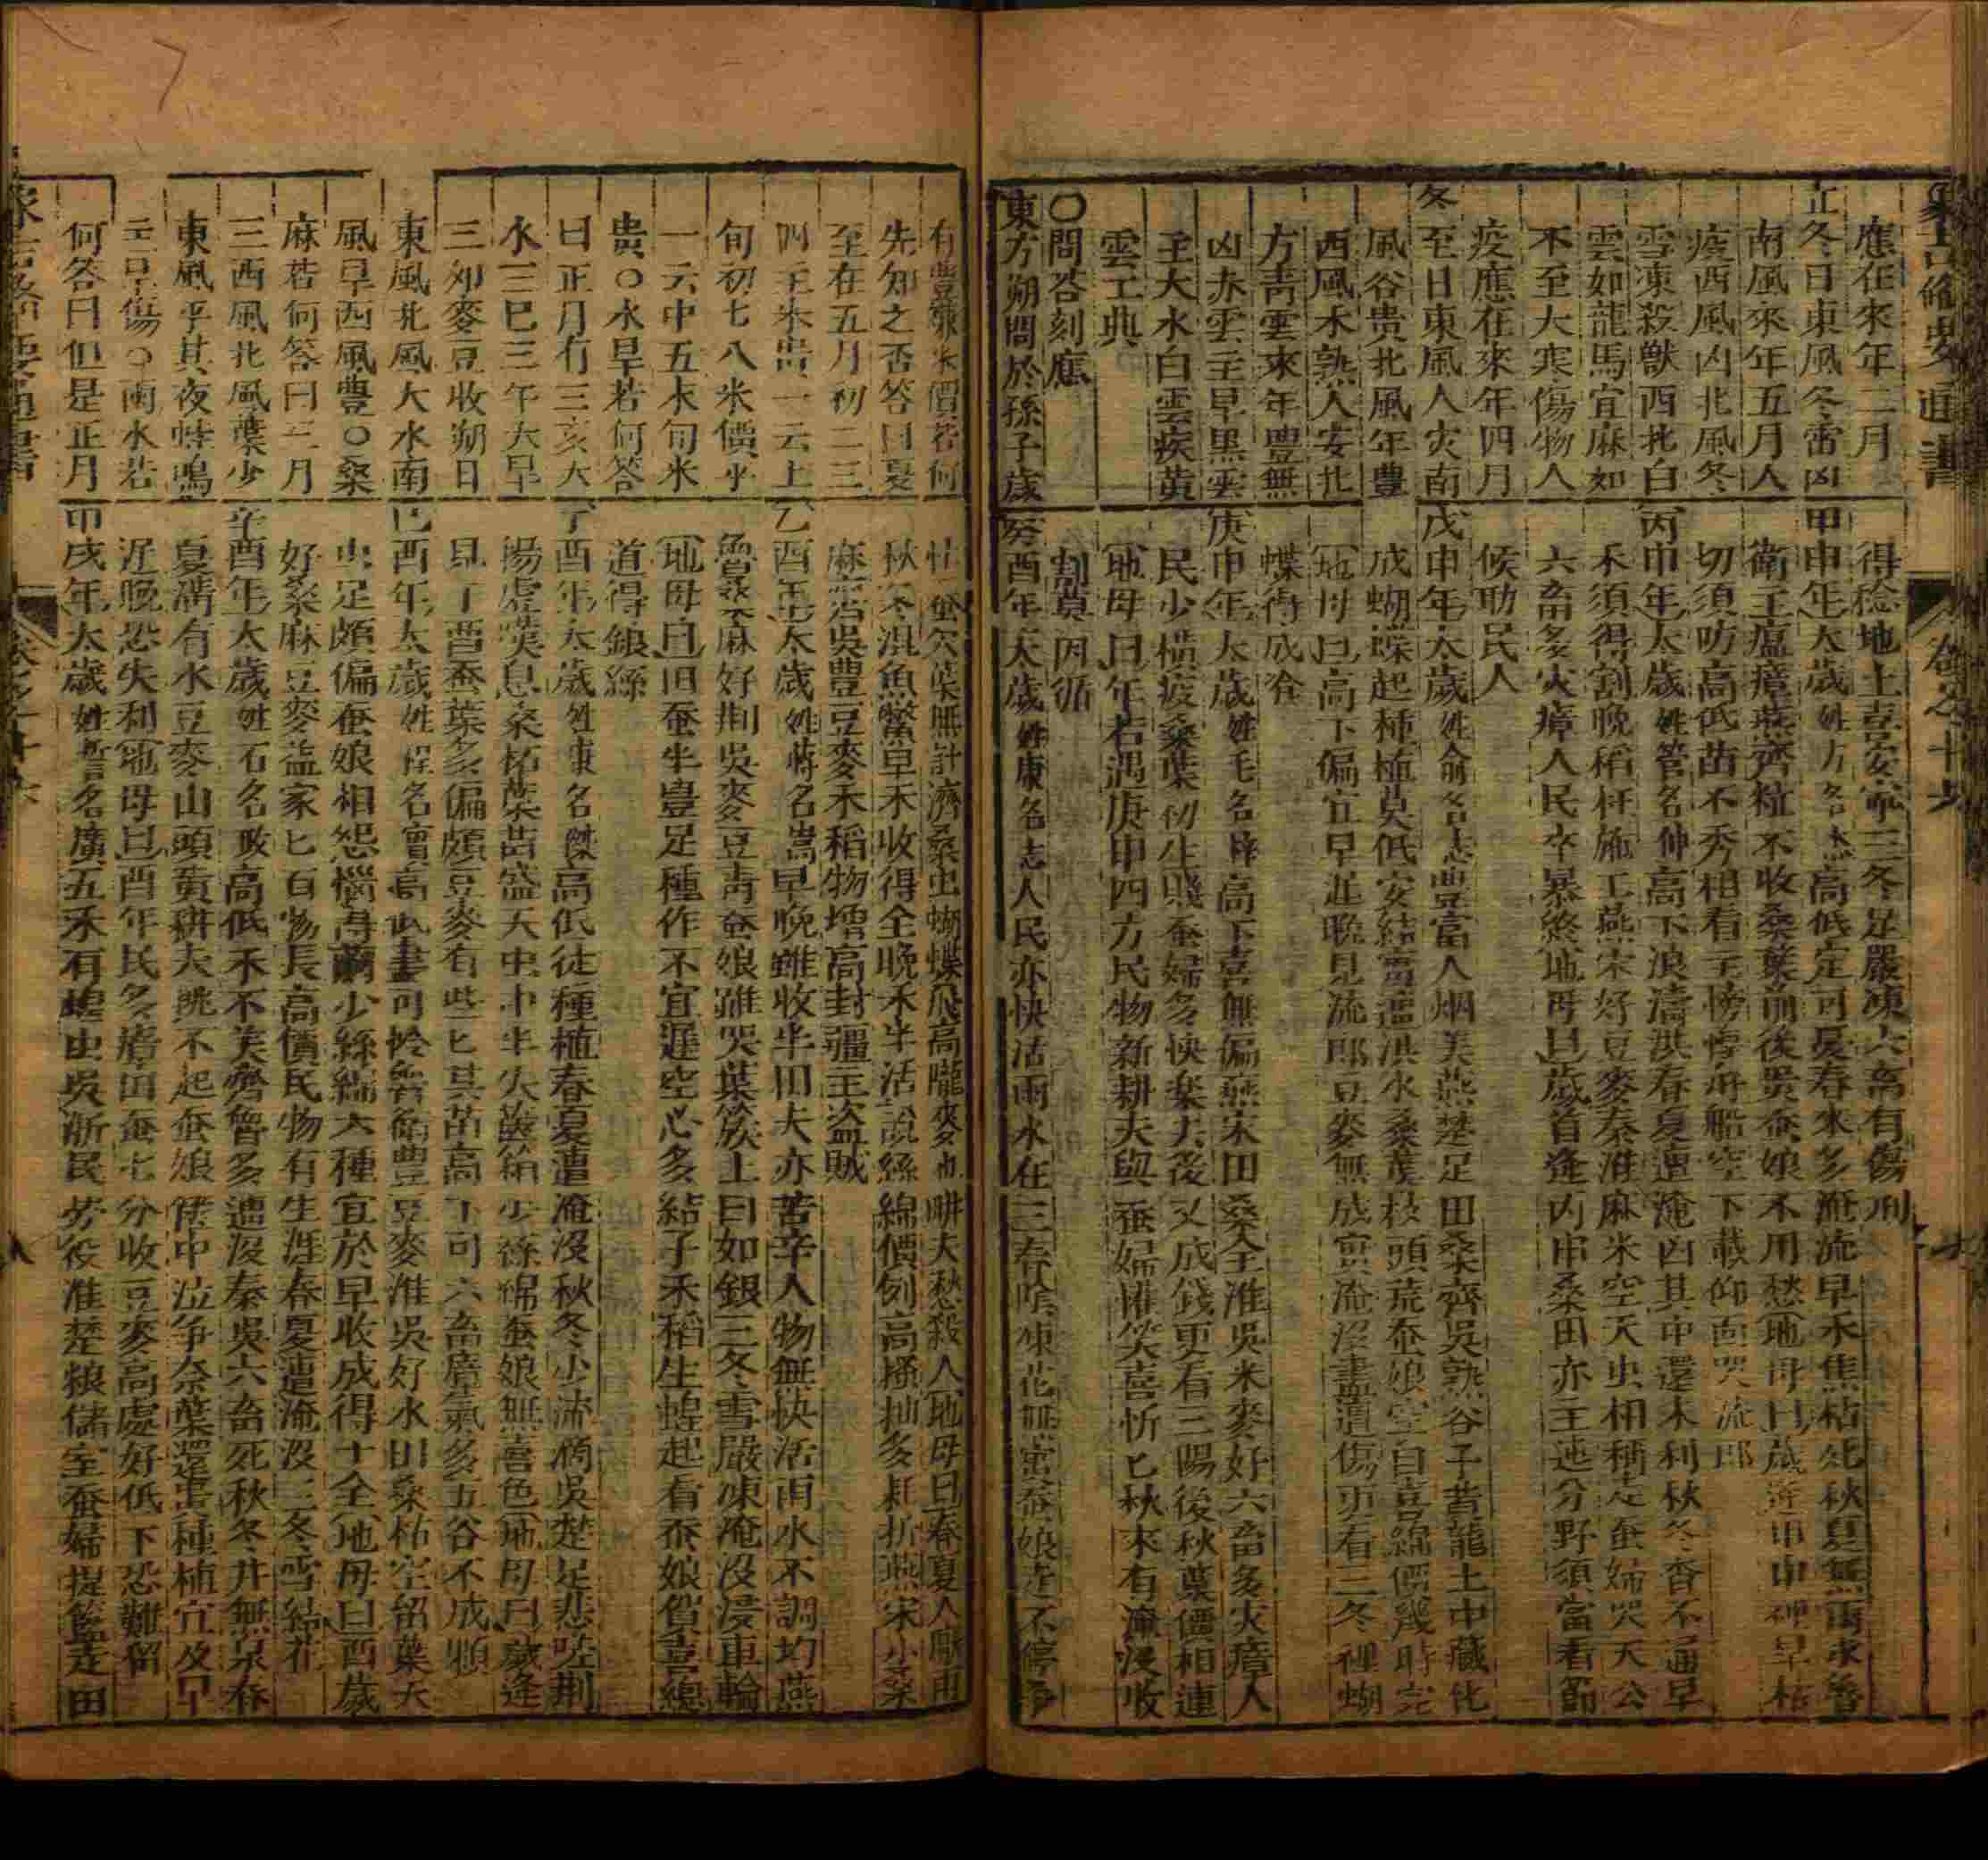 象吉備要通書
卷之十九
應在來年二月
立冬日東風冬雷凶
南風來年五月人
疫西風凶北風冬
雪凍殺獸西北白
雲如龍馬宜麻如
不至大寒傷物人
疫應在來年四月
冬至日東風人灾南
風谷贵北風年豊
西風禾熟人安北
方青雲來年豊無
凶赤雲主旱黑雲
主大水白雲疾黄
雲工典
〇問答刻應
東方朔問於孫子歲
得稔地土喜安寧三冬足嚴凍六畜有傷刑
甲申年太歲姓方名杰高低定可憂春來多淹流早禾焦枯死秋夏無雨求魯
衛主瘟瘴燕齊粒不收桑葉前後貴蚕娘不用愁地母曰歲逢甲申裡旱枯
切須防高低苗不秀相看主傍惶舟船空下載仰面哭流郎
丙申年太歲姓管名仲高下浪濤洪春夏遭淹凶其中還未利秋冬杳不通早
禾須得割晚稻枉施工燕宋好豆麥秦淮麻米空天虫相稱走蚕婦哭天公
六畜多灾瘴人民卒暴終地母曰歲首逢丙申桑田亦主迍分野須當看節
候助民人
戊申年太歲姓俞名志豊富人烟美燕楚足田桑齊吳熟谷子黄龍土中藏化
成蝴蝶起種植莫低安結實遭洪水桑葉枝頭荒蚕娘空自喜綿價幾時完
地母曰高下偏宜早遲晚見流郎豆麥無成實淹沒盡遭傷更看三冬裡蝴
蝶得成谷
庚申年太歲姓毛名梓高下喜無偏燕宋田桑全淮吳米麥好六畜多灾瘴人
民少横疫桑葉初生賤蚕婦多快楽去後又成錢更看三陽後秋葉價相連
地母曰年若遇庚申四方民物新耕夫與蚕婦懽笑喜忻忻秋來有淹浸收
割莫因循
癸酉年太歲姓康名志人民亦快活雨水在三春陰凍花無蜜蚕娘走不停争
有豊歉米價答何
先知之否答曰夏
至在五月初二三
四主米贵一云上
旬初七八米價平
一云中五末旬米
贵〇水旱若何答
曰正月有三亥大
水三巳三午大旱
三卯麥豆收朔日
東風北風大水南
風旱西風豊〇桑
麻若何答曰三月
三西風北風葉少
東風平其夜蛙鳴
主旱傷〇雨水若
何答曰但是正月
秋冬混魚鱉早禾收得全晚禾半活說絲綿價例高播拙多耗折燕宋少桑
麻荆吳豊豆麥禾稻物增高封疆主盗賊
乙酉年太歲姓蔣名嵩早晚雖收半田夫亦苦辛人物無快活雨水不調均燕
魯桑麻好荆吳麥豆青蚕娘雖哭葉簇上曰如銀三冬雪嚴凍淹沒浸車輪
地母曰旧蚕半豊足種作不宜遲空心多結子禾稻生蝗起看蚕娘貿喜總
道得銀絲
丁酉年太歲姓康名傑高低徒種植春夏遭淹沒秋冬少流滴吳楚足悲嗟荆
陽虚莫息桑柘葉苗盛天虫中半失簇箔少絲綿蚕娘無喜色地母曰歲逢
見丁酉蚕葉多偏頗豆麥有些匕其苗高下可六畜瘴氣多五谷不成顆
己酉年太歲姓程名寶高低盡可怜魯衛豊豆麥淮吳好水田桑柘空留葉天
虫足頗偏蚕娘相怨惱得繭少絲綿大種宜於早收成得十全地母曰酉歲
好桑麻豆麥益家匕百物長高價民物有生涯春夏遭淹沒三冬雪結花
辛酉年太歲姓石名政高低禾不美齊魯多遭沒秦吳六畜死秋冬井無泉春
夏溝有水豆麥山頭黄耕夫跳不起蚕娘筐中泣争奈葉還貴種植宜及早
遲晚恐失利地母曰酉年民多瘴田蚕七分收豆麥高處好低下恐難留
甲戌年太歲姓誓名廣五禾有蝗虫吳浙民劳役淮楚粮儲空蚕婦提籃走田